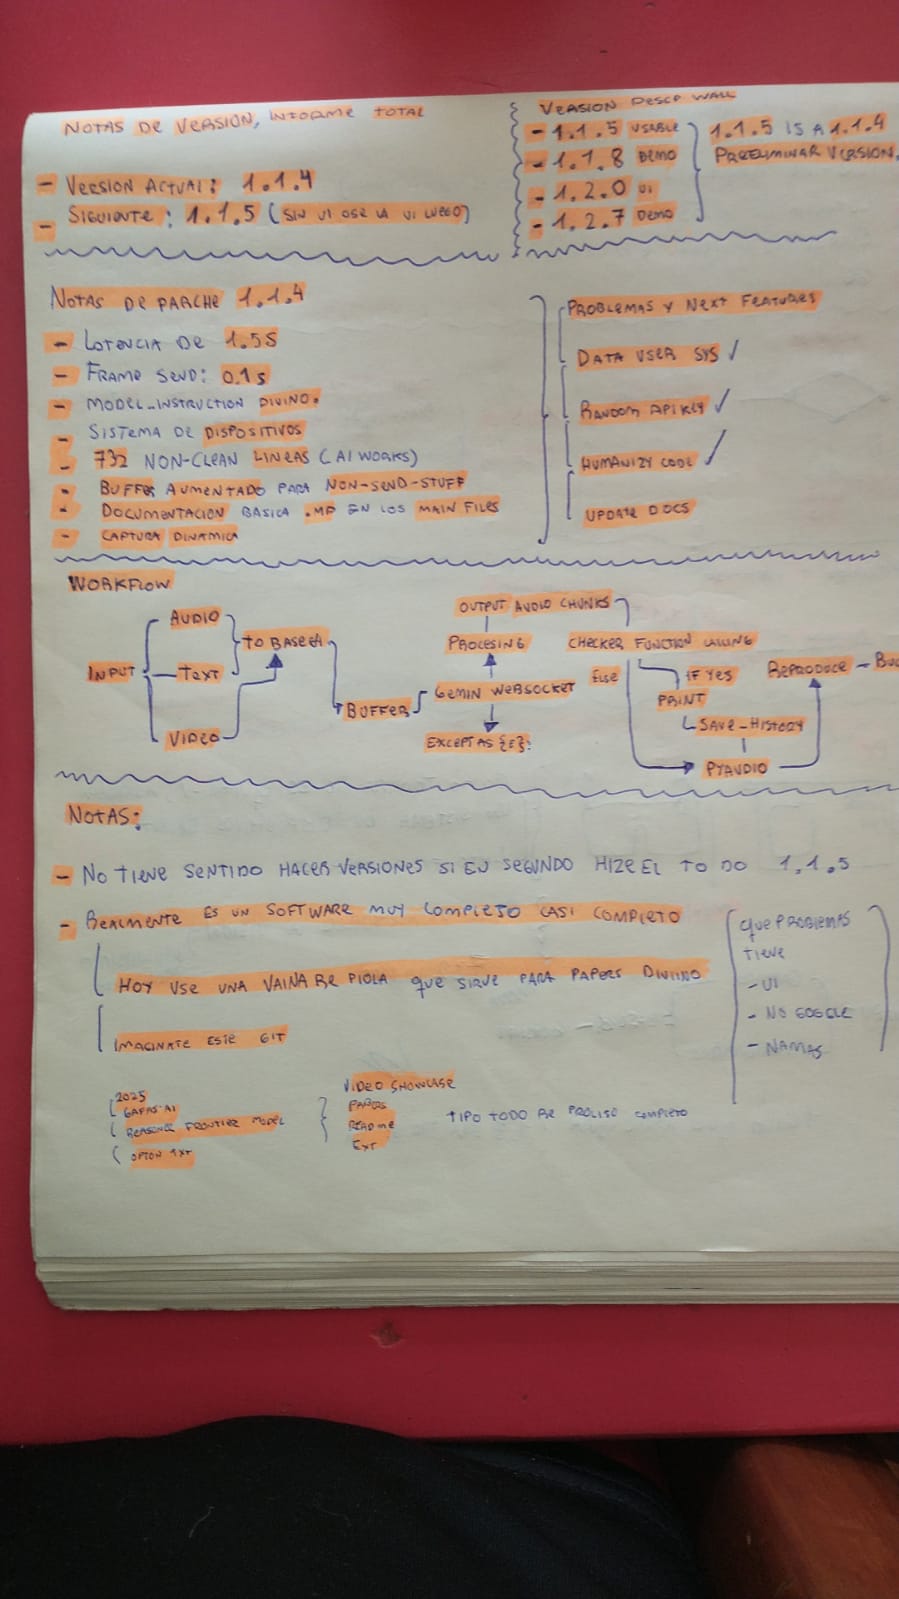 NOTAS DE VERSION, INFORME TOTAL
- VERSION ACTUAL: 1.1.4
- SIGUIENTE: 1.1.5 (SIN UI OSE LA UI LUEGO)
VERSION DESCP WALL
- 1.1.5 USABLE
- 1.1.8 DEMO
- 1.2.0 UI
- 1.2.7 DEMO
1.1.5 IS A 1.1.4
PREELIMINAR VERSION.
NOTAS DE PARCHE 1.1.4
- LATENCIA DE 1.5S
- FRAME SEND: 0.1s
- MODEL_INSTRUCTION DIVINO.
- SISTEMA DE DISPOSITIVOS
- 732 NON-CLEAN LINEAS (AI WORKS)
- BUFFER AUMENTADO PARA NON-SEND-STUFF
- DOCUMENTACION BASICA .MD EN LOS MAIN FILES
- CAPTURA DINAMICA
PROBLEMAS Y NEXT FEATURES
DATA USER SYS ✓
RANDOM APIKEY ✓
HUMANIZY CODE ✓
UPDATE DOCS
WORKFLOW
INPUT
AUDIO
TEXT
VIDEO
TO BASE64
BUFFER
OUTPUT AUDIO CHUNKS
PROCESING
GEMINI WEBSOCKET
EXCEPT AS {E}:
CHECKER FUNCTION CALLING
ELSE
IF YES
PRINT
SAVE-HISTORY
PYAUDIO
REPRODUCE -
NOTAS:
- NO TIENE SENTIDO HACER VERSIONES SI EN SEGUNDO HIZE EL TO DO 1.1.5
- REALMENTE ES UN SOFTWARE MUY COMPLETO CASI COMPLETO
HOY USE UNA VAINA RE PIOLA QUE SIRVE PARA PAPERS DIVINO
IMAGINATE ESTE GIT
QUE PROBLEMAS
TIENE
- UI
- NO GOOGLE
- NAMAS
2025
GAFAS-AI
FRONTIER MODEL
TXT
VIDEO SHOWCASE
PAPERS
README
EXT
TIPO TODO RE PROLIJO COMPLETO